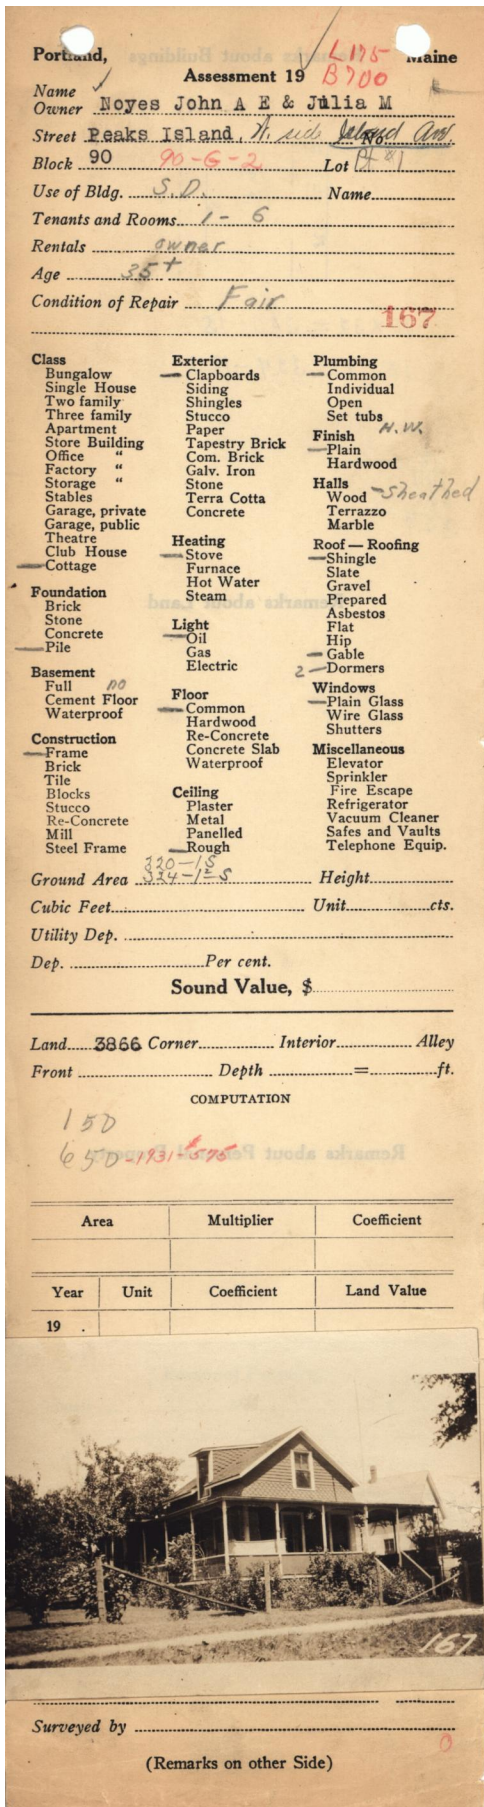 L 175
Portland, Maine
Assessment 19 B 700
Name
Owner Noyes John A E & Julia M
Street Peaks Island, N. side Island Ave. No
Block 90 90-G-2 Lot
Use of Bldg. S.D. Name
Tenants and Rooms 1 - 6
Rentals owner
Age 35+
Condition of Repair Fair
167
Class
Bungalow
Single House
Two family
Three family
Apartment
Store Building
Office "
Factory "
Storage "
Stables
Garage, private
Garage, public
Theatre
Club House
Cottage
Foundation
Brick
Stone
Concrete
Pile
Basement
Full no
Cement Floor
Waterproof
Construction
Frame
Brick
Tile
Blocks
Stucco
Re-Concrete
Mill
Steel Frame
Exterior
Clapboards
Siding
Shingles
Stucco
Paper
Tapestry Brick
Com. Brick
Galv. Iron
Stone
Terra Cotta
Concrete
Heating
Stove
Furnace
Hot Water
Steam
Light
Oil
Gas
Electric
Floor
Common
Hardwood
Re-Concrete
Concrete Slab
Waterproof
Ceiling
Plaster
Metal
Panelled
Rough
Plumbing
Common
Individual
Open
Set tubs
Finish H.W.
Plain
Hardwood
Halls
Wood - sheathed
Terrazzo
Marble
Roof — Roofing
Shingle
Slate
Gravel
Prepared
Asbestos
Flat
Hip
Gable
2 - Dormers
Windows
Plain Glass
Wire Glass
Shutters
Miscellaneous
Elevator
Sprinkler
Fire Escape
Refrigerator
Vacuum Cleaner
Safes and Vaults
Telephone Equip.
320-1S
Ground Area 324- Height
Cubic Feet Unit cts.
Utility Dep.
Dep. Per cent.
Sound Value, $
Land 3866 Corner Interior Alley
Front Depth = ft.
COMPUTATION
150
650 -1931-$575
Area Multiplier Coefficient
Year Unit Coefficient Land Value
19 .
167
Surveyed by
0
(Remarks on other Side)